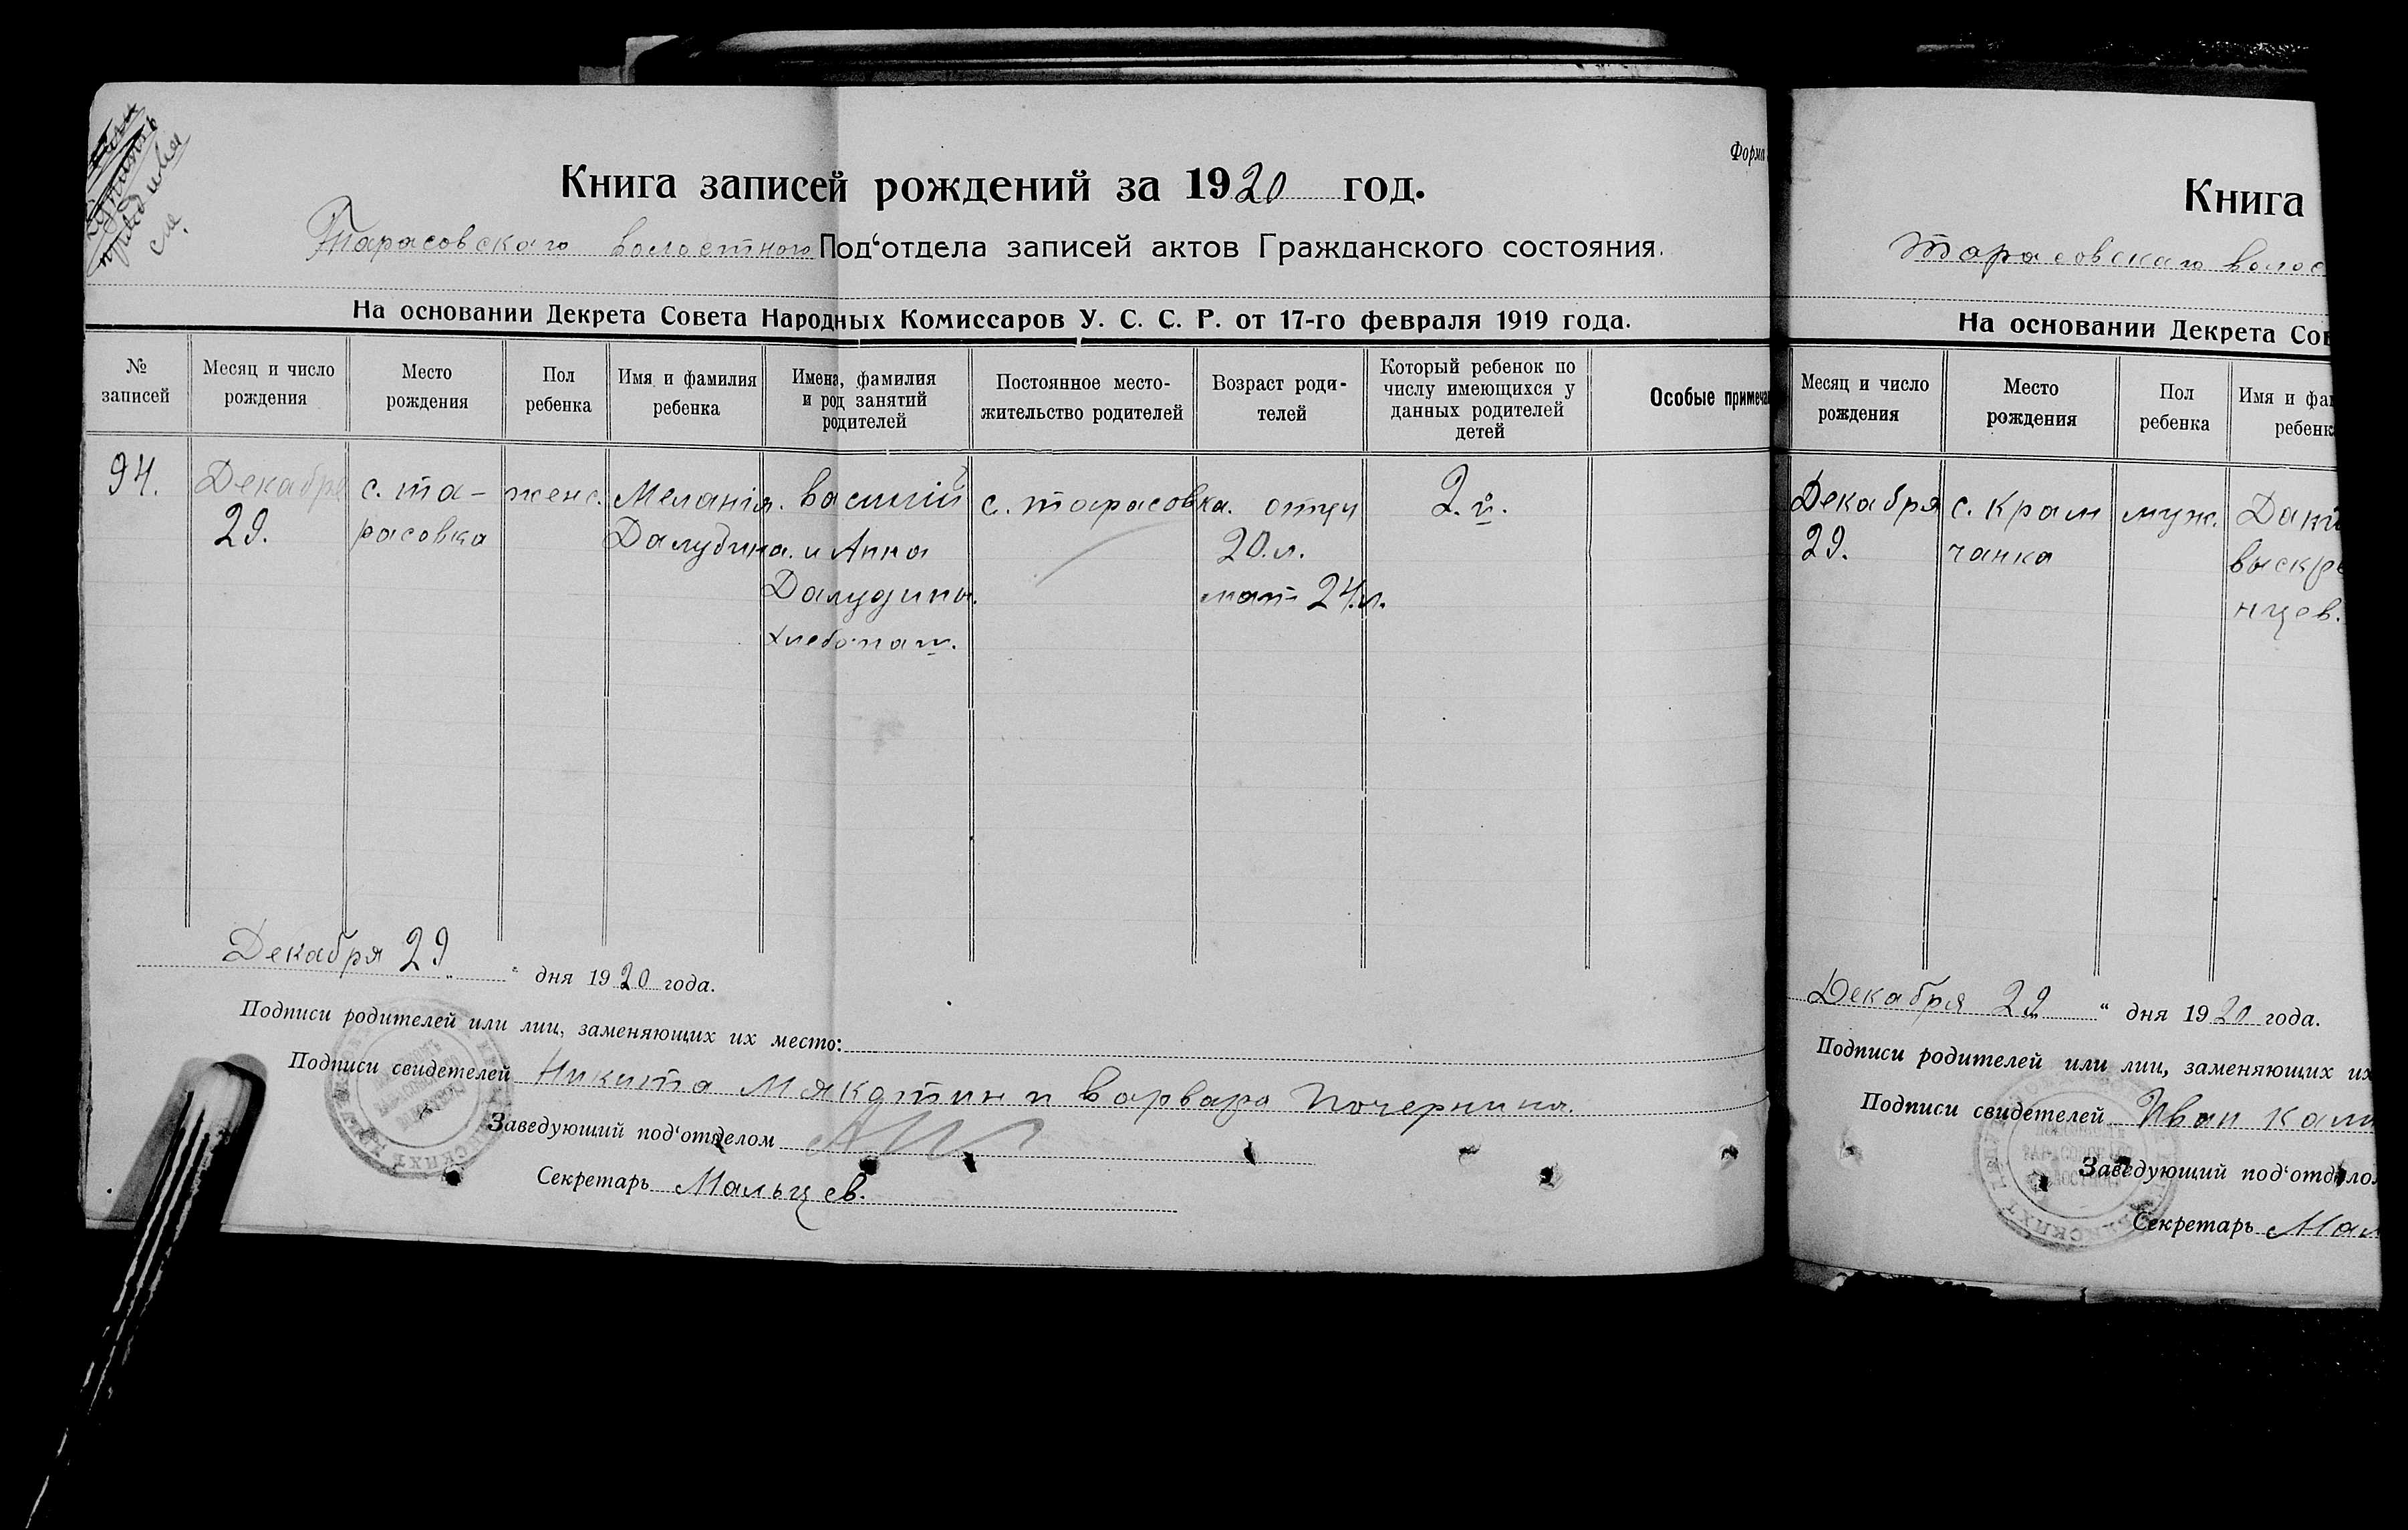 Форма
Книга записей рождений за 1920 год.
Тарасовского волостного Под‘отдела записей актов Гражданского состояния.
На основании Декрета Совета Народных Комиссаров У. С. С. Р. от 17-го февраля 1919 года.
№ записей
Месяц и число рождения
Место рождения
Пол ребенка
Имя и фамилия ребенка
Имена, фамилия и род занятий родителей
Постоянное место-жительство родителей
Возраст роди-телей
Который ребенок по числу имеющихся у данных родителей детей
Особые примеча
94.
Декабря
29.
с. та-
расовка
женс.
Меланія.
Далудина.
Василій
и Анна
Далудины.
хлебопаш.
с. тарасовка.
отцу
20.л.
мат 24.л.
2.й.
Декабря 29 " дня 1920 года.
Подписи родителей или лиц, заменяющих их место:
Подписи свидетелей Никита Мякотин и Варвара Почернина.
Заведующий под‘отделом
Секретарь Мальцев.
Книга
Тарасовскаго волос
На основании Декрета Сов
Месяц и число рождения
Место рождения
Пол ребенка
Имя и фа
ребенк
Декабря
29.
с. Крам
чанка
муж.
Дани
выскре
нцев.
Декабря 29 " дня 1920 года.
Подписи родителей или лиц, заменяющих их
Подписи свидетелей Иван Кали
Заведующий под‘отдело
Секретарь Мал